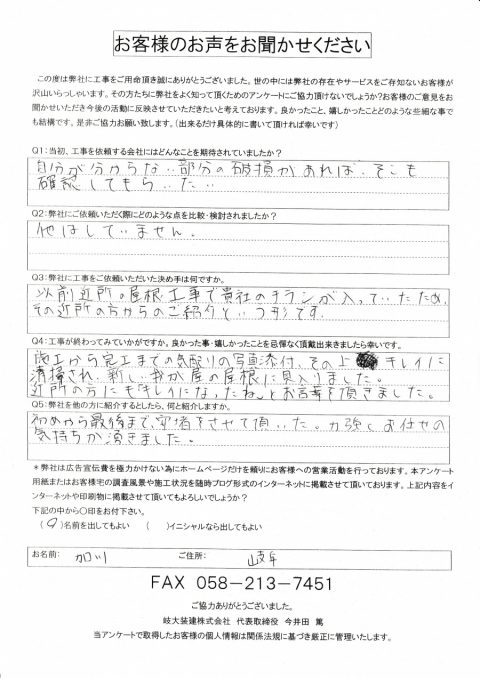 お客様のお声をお聞かせください
この度は弊社に工事をご用命頂き誠にありがとうございました。世の中には弊社の存在やサービスをご存知ないお客様が
沢山いらっしゃいます。その方たちに弊社をよく知って頂くためのアンケートにご協力頂けないでしょうか?お客様のご意見をお
聞かせいただき今後の活動に反映させていただきたいと考えております。良かったこと、嬉しかったことどのような些細な事で
も結構です。是非ご協力お願い致します。(出来るだけ具体的に書いて頂ければ幸いです)
Q1:当初、工事を依頼する会社にはどんなことを期待されていましたか?
自分が分からない部分の破損があれば、そこも
確認してもらいたい
Q2:弊社にご依頼いただく際にどのような点を比較・検討されましたか?
他はしていません。
Q3:弊社に工事をご依頼いただいた決め手は何ですか。
以前近所の屋根工事で貴社のチラシが入っていたため、
その近所の方からのご紹介という形です。
Q4:工事が終わってみていかがですか。良かった事・嬉しかったことを忌憚なく頂戴出来きましたら幸いです。
施工から完工までの気配りの写真添付、その上キレイに
清掃され、新しい我が屋の屋根に見入りました。
近所の方にも「キレイになったね」とお言葉を頂きました。
Q5:弊社を他の方に紹介するとしたら、何と紹介しますか。
初めから最後まで、安堵をさせて頂いた。力強くお任せの
気持ちが湧きました。
*弊社は広告宣伝費を極力かけない為にホームページだけを頼りにお客様への営業活動を行っております。本アンケート
用紙またはお客様宅の調査風景や施工状況を随時ブログ形式のインターネットに掲載させて頂いております。上記内容をイ
ンターネットや印刷物に掲載させて頂いてもよろしいでしょうか?
下記の中から〇印をお付下さい。
(〇)名前を出してもよい ( )イニシャルなら出してもよい
お名前: 加川 ご住所: 岐阜
FAX 058-213-7451
ご協力ありがとうございました。
岐大装建株式会社 代表取締役 今井田 篤
当アンケートで取得したお客様の個人情報は関係法規に基づき厳正に管理いたします。